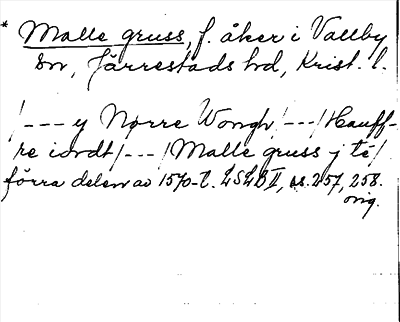 * Malle gruss, f. åker i Vallby
sn, Järrestads hd, Krist. l.
/--- y Nørre Wongh /---/ Hauff-
re iordt /---/ Malle gruss j té/
förra delen av 1570-t. LSLB II, ss. 257, 258.
orig.